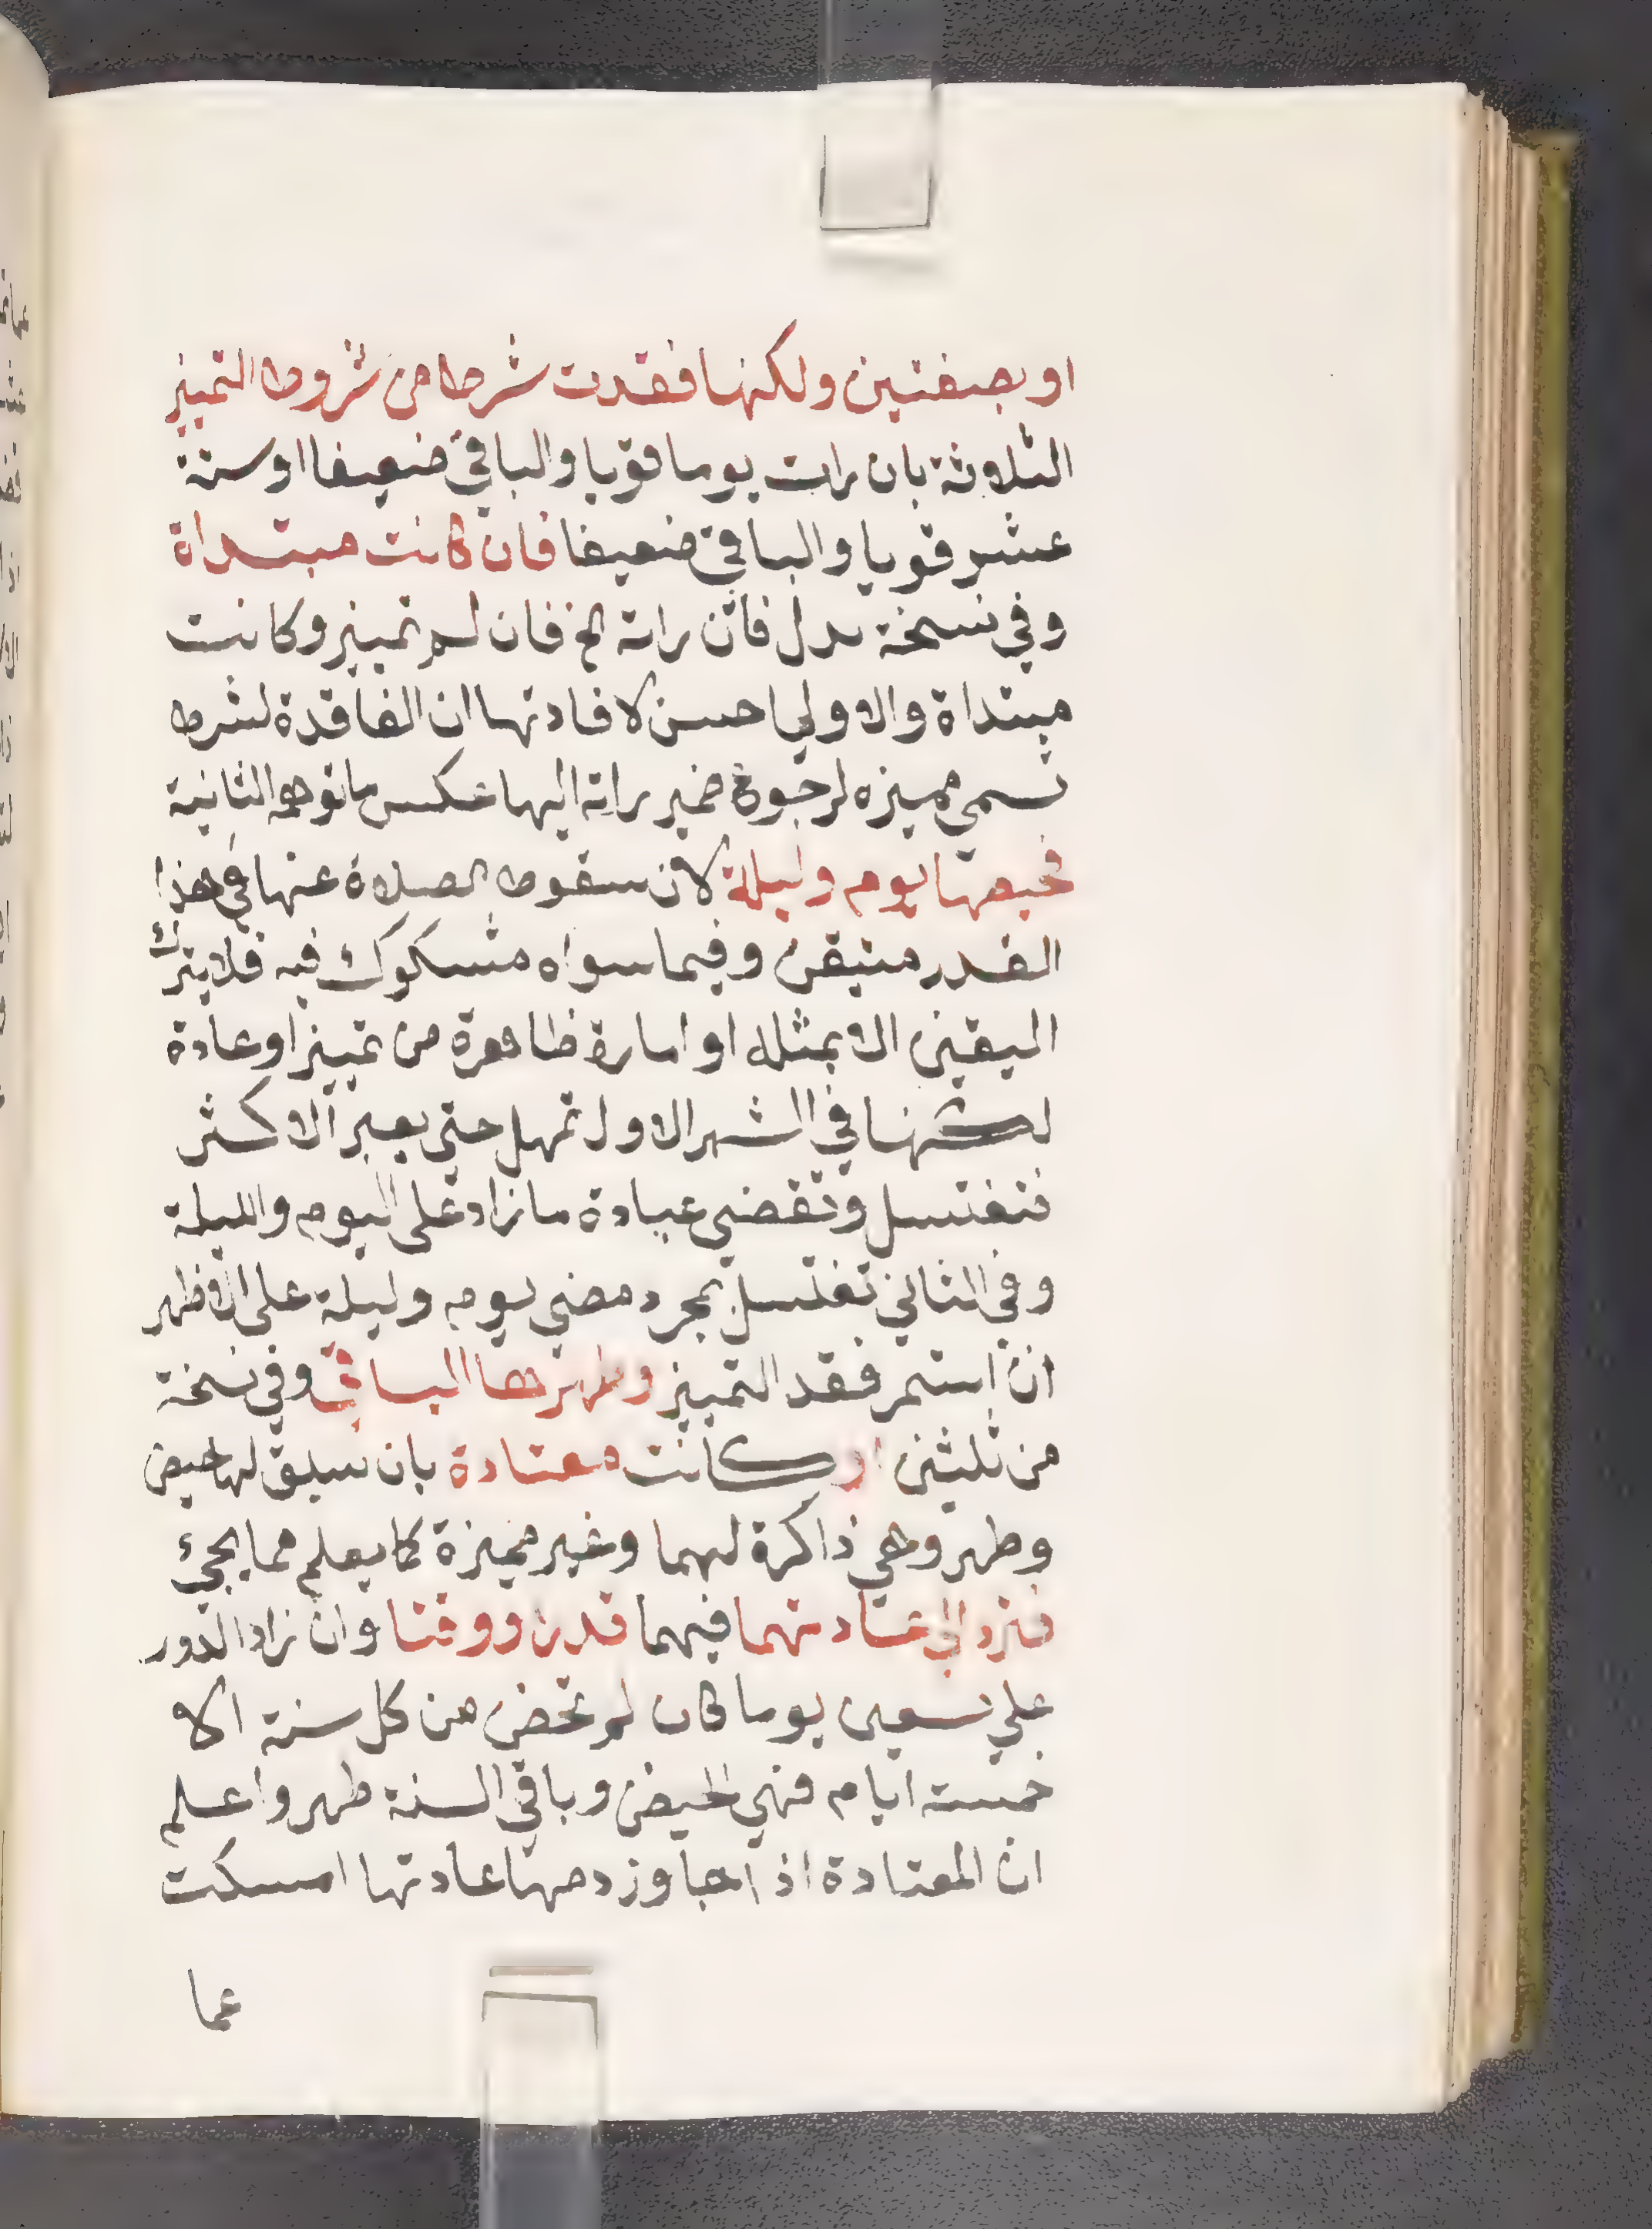 او بصفتين ولكنها فقدت شرطا من شروط التميز
الثلاثة بان رات يوما قويا والباقي ضعيفا او ستة
عشر قويا والباقي ضعيفا فان كانت مبتداة
وفي نسخة بدل فان راته الخ فان لم تميز وكانت
مبتداة والاولي احسن لافادتها ان الفاقدة لشرط
تسمي مميزه لرجوع ضمير راته اليها عكس ما توهمه الثانية
فحيضها يوم وليلة لان سقوط الصلاة عنها في هذا
القدر متيقن وفيما سواه مشكوك فيه فلا يترك
اليقين الا بمثله او امارة ظاهرة من تميز او عادة
لكنها في الشهر الاول تمهل حتي يعبر الاكثر
فتغتسل وتقضي عبادة ما زاد علي اليوم والليلة
وفي الثاني تغتسل بمجرد مضي يوم وليلة علي الاظهر
ان استمر فقد التميز وطهرها الباقي وفي نسخة
من ثلثين او كانت معتادة بان سبق لها حيض
وطهر وهي ذاكرة لهما وغير مميزة كما يعلم مما يجيء
فترد الي عادتهما فيهما قدرا ووقتا وان زاد الدور
علي تسعين يوما كان لم تحض من كل سنة الا
خمسة ايام فهي الحيض وباقي السنة طهر واعلم
ان المعتادة اذا جاوز دمها عادتها امسكت
عما